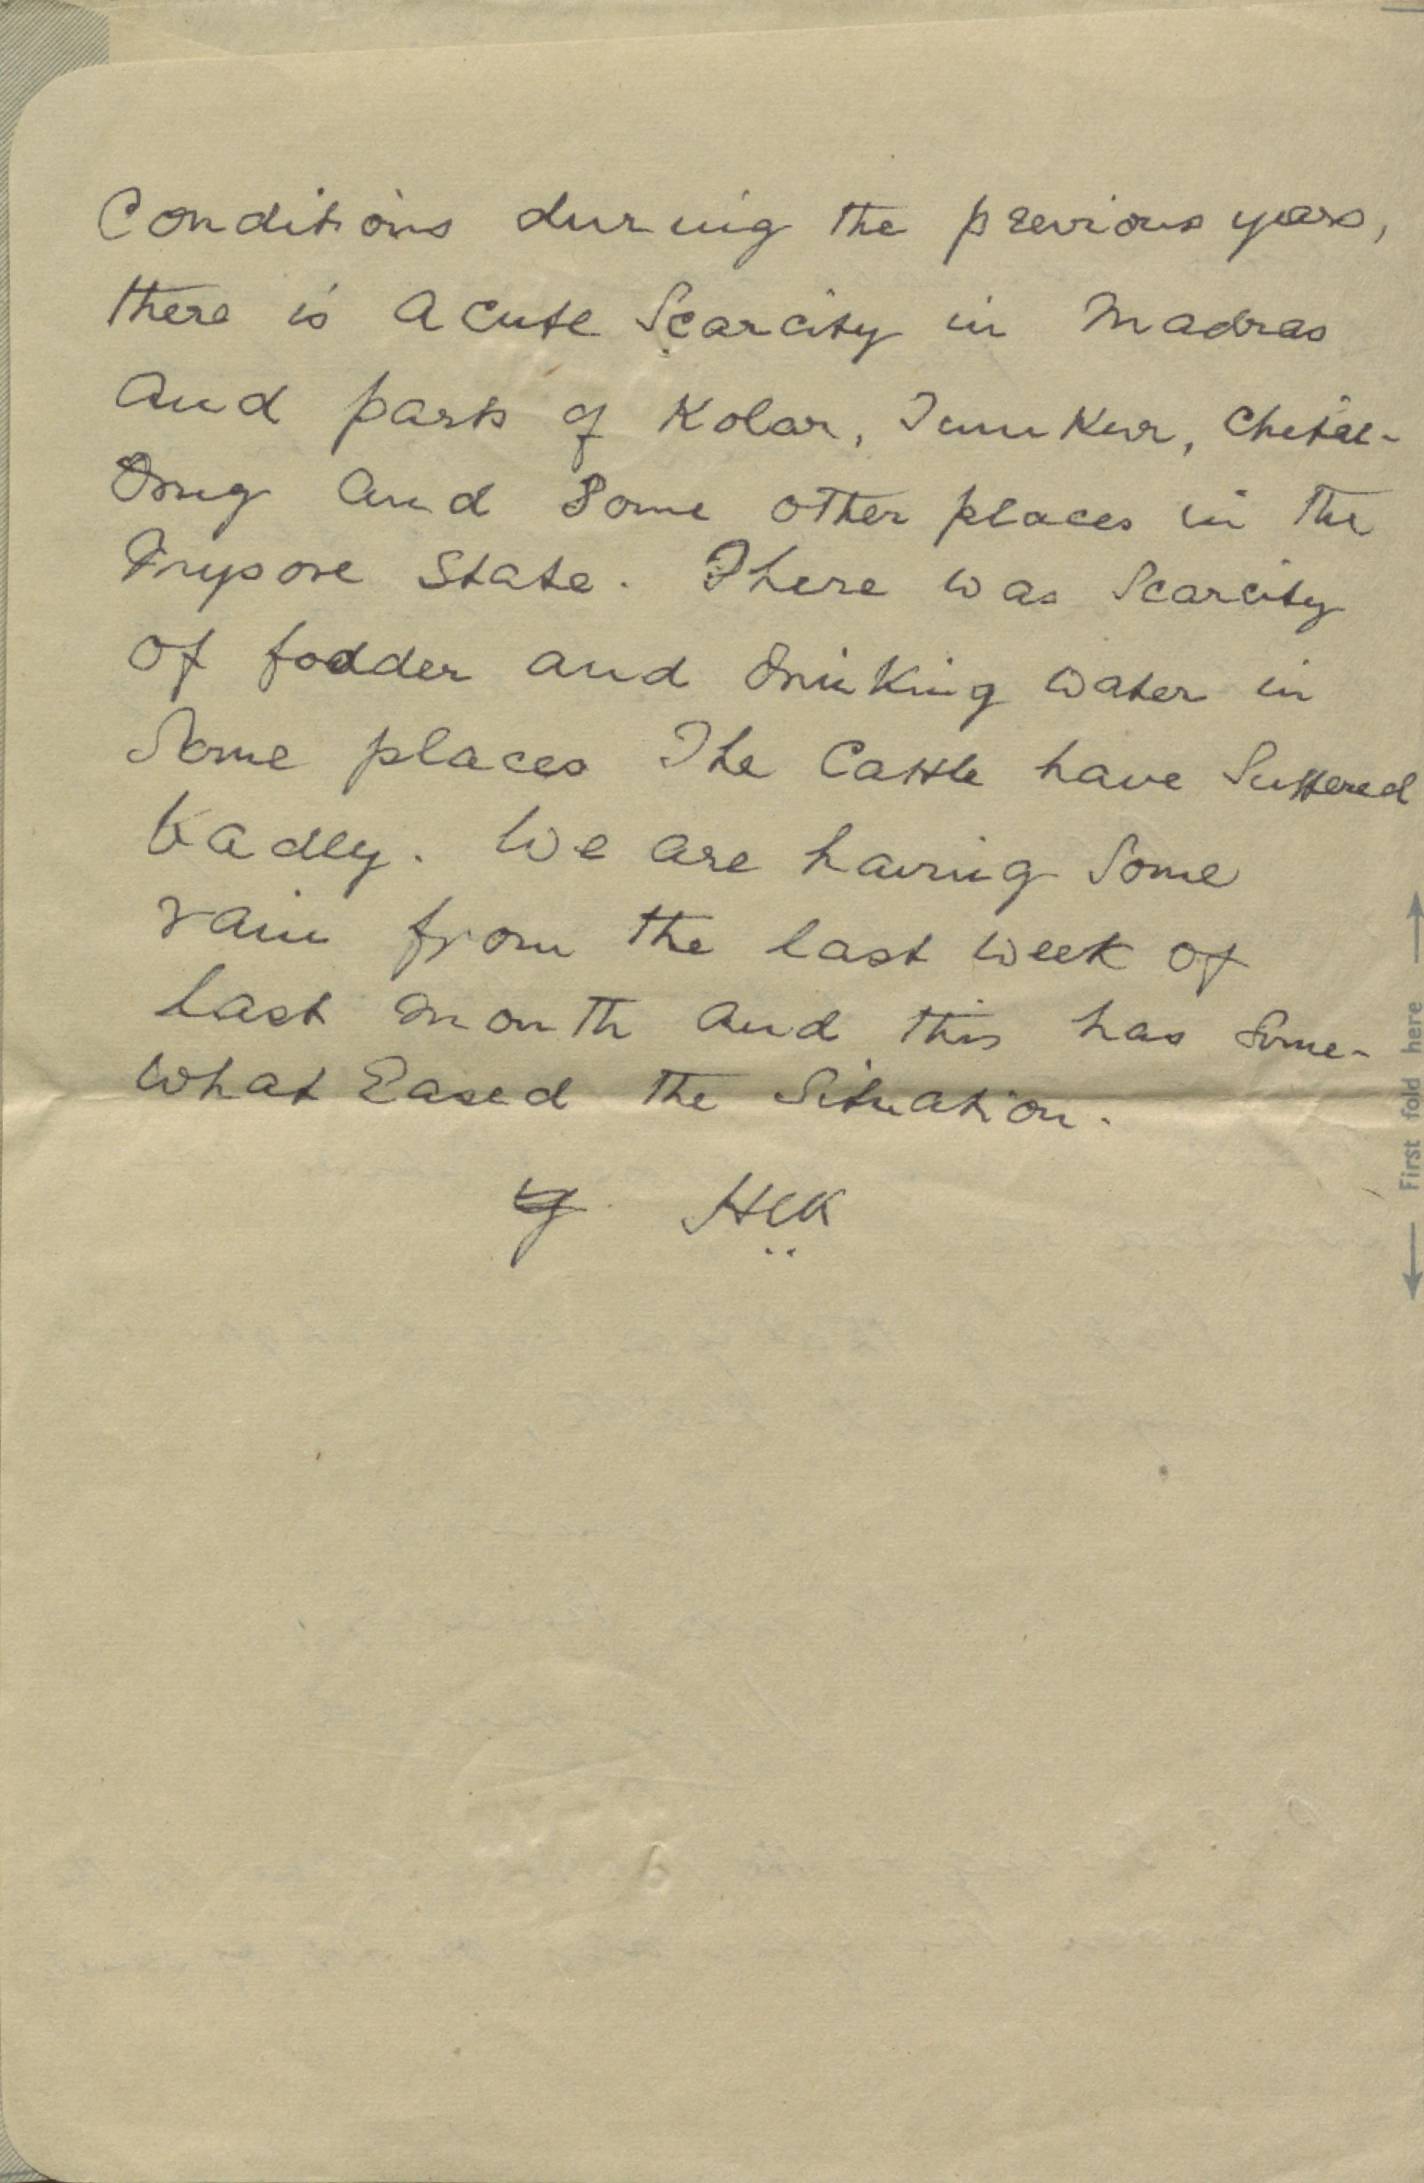 Conditions during the previous years,
there is acute Scarcity in Madras
and parts of Kolar, Tumkur, Chital-
drug and some other places in the
Mysore State. There was Scarcity
of fodder and drinking water in
Some places The Cattle have Suffered
badly. We are having Some
rain from the last week of
last month and this has Some-
what Eased the Situation.
HCK
First fold here